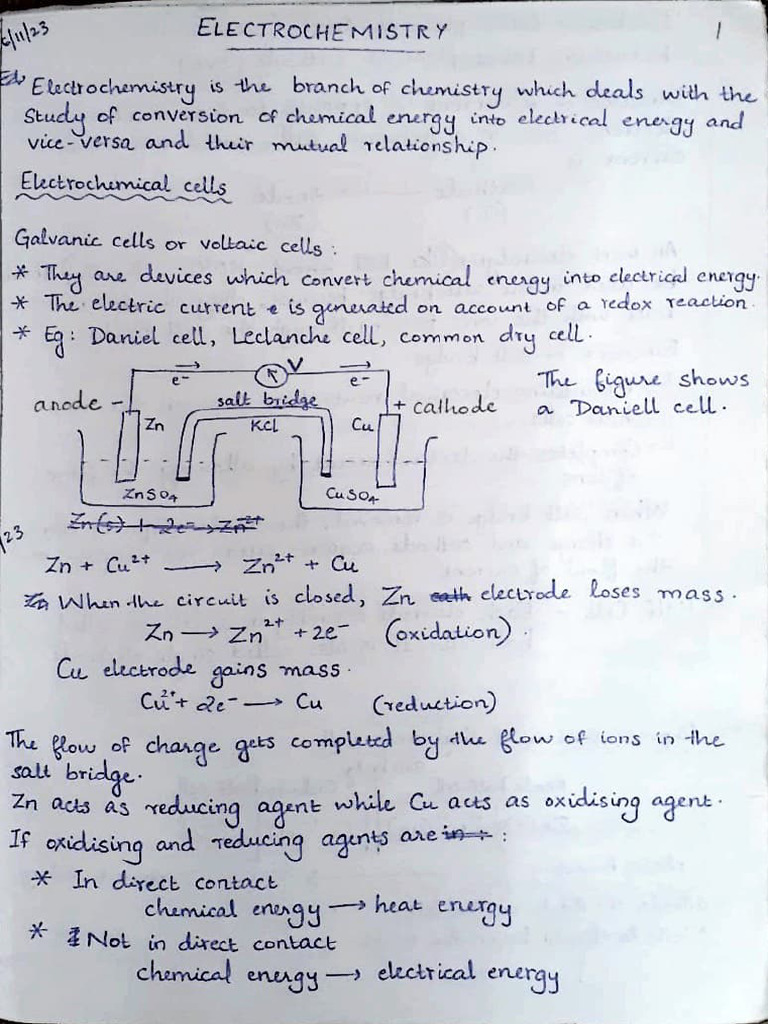 6/11/23
ELECTROCHEMISTRY
1
Electrochemistry is the branch of chemistry which deals with the
study of conversion of chemical energy into electrical energy and
vice-versa and their mutual relationship.
Electrochemical cells
Galvanic cells or voltaic cells :
* They are devices which convert chemical energy into electrical energy.
* The electric current e is generated on account of a redox reaction.
* Eg: Daniel cell, Leclanche cell, common dry cell.
e⁻ V e⁻
anode - salt bridge + cathode
Zn KCl Cu
ZnSO₄ CuSO₄
The figure shows
a Daniell cell.
Zn(s) + 2e⁻ → Zn²⁺
/23
Zn + Cu²⁺ → Zn²⁺ + Cu
Zn When the circuit is closed, Zn cath electrode loses mass.
Zn → Zn²⁺ + 2e⁻ (oxidation).
Cu electrode gains mass.
Cu²⁺ + 2e⁻ → Cu (reduction)
The flow of charge gets completed by the flow of ions in the
salt bridge.
Zn acts as reducing agent while Cu acts as oxidising agent.
If oxidising and reducing agents are in :
* In direct contact
chemical energy → heat energy
* Not in direct contact
chemical energy → electrical energy